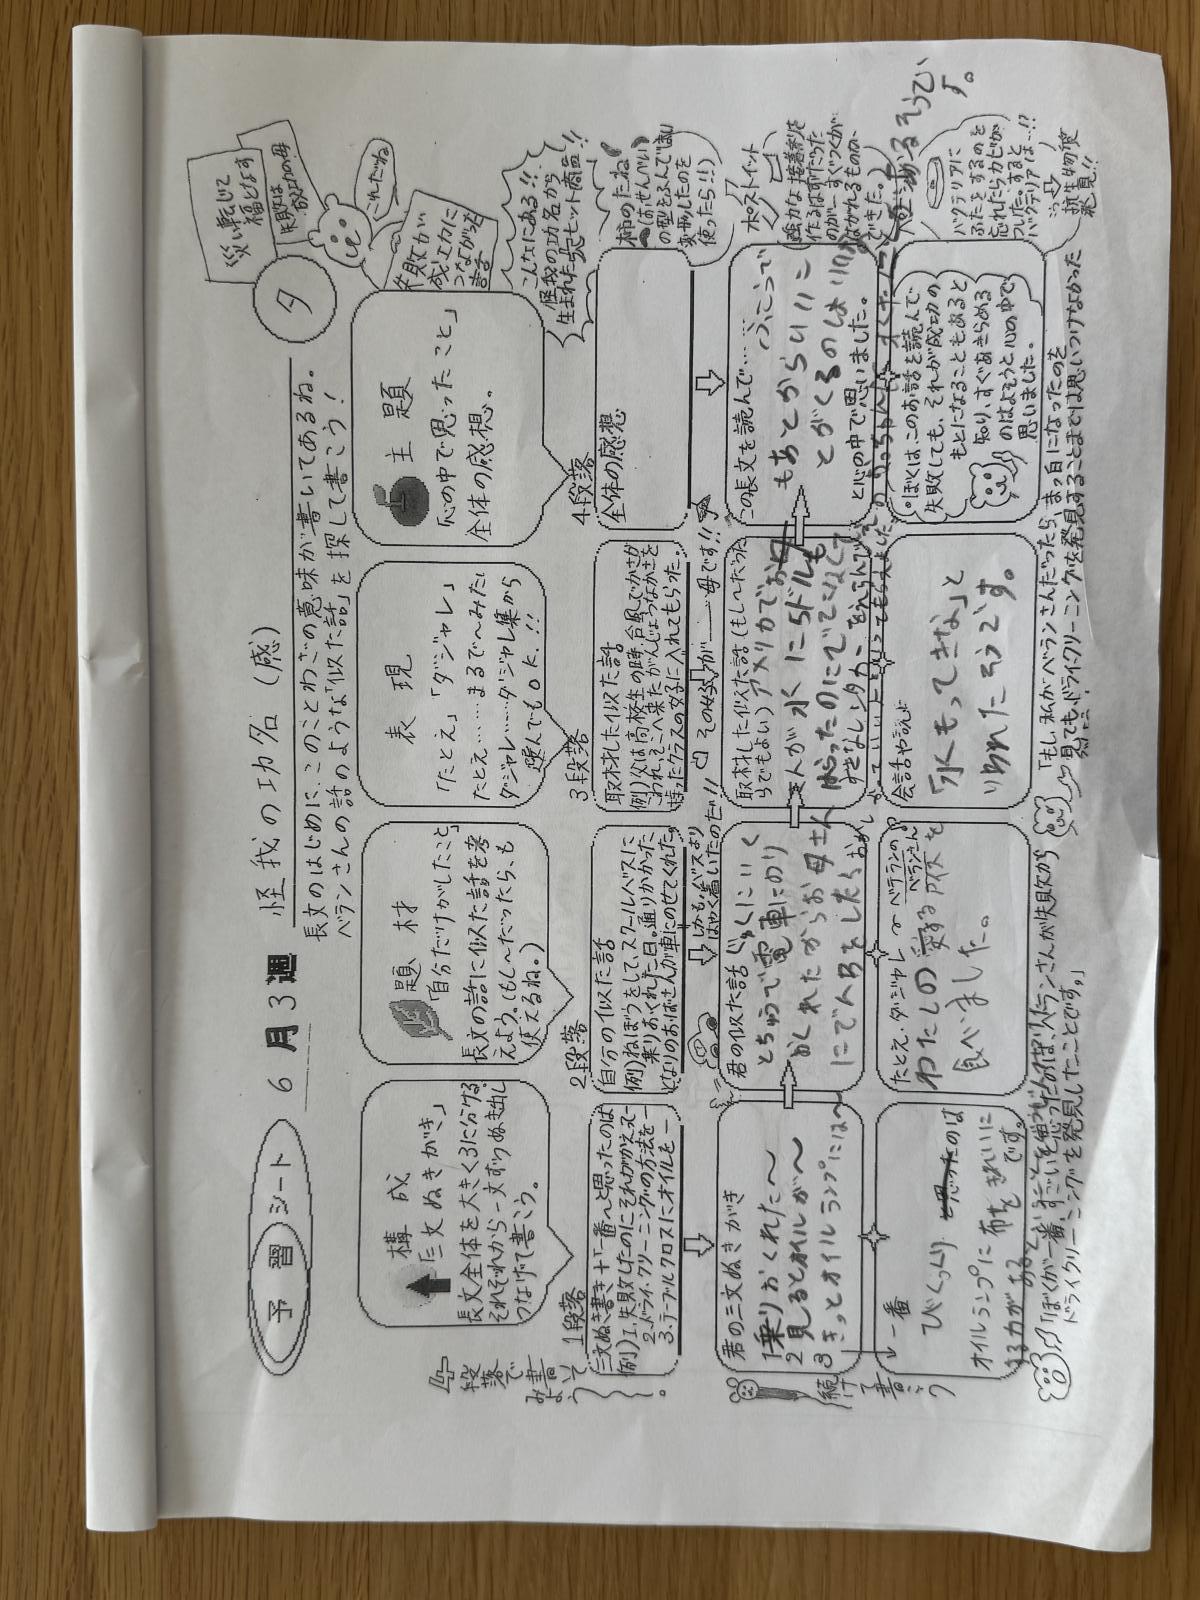 予習シート 6月3週 怪我の功名(感) 夕
長文のはじめに、このことわざの意味が書いてあるね。
ベランさんの話のような「似た話」を探して書こう!
災い転じて
福となす
失敗は
成功の母
これだね
失敗が
成功に
つながった
話
構成
「三文ぬきがき」
長文全体を大きく3に分ける。
それぞれから一文ずつぬき出し
つなげて書こう。
題材
「自分だけがしたこと」
長文の話に似た話を考
えよう。(もし〜だったら、も
使えるね。)
表現
「たとえ」「ダジャレ」
たとえ……まるで〜みたい
ダジャレ……ダジャレ集から
選んでもOK.!!
主題
「心の中で思ったこと」
全体の感想。
こんなにある!!
怪我の功名から
生まれた大ヒット商品!!
4段落
で書い
てみ
よう
1段落
三文ぬき書き+「一番〜と思ったのは
例)1.失敗したのにそれがかえって—
2.ドライ・クリーニングの方法を—
3.テーブルクロスにオイルを—
2段落
自分の似た話
例)ねぼうをして、スクールバスに
乗りおくれた日。通りかかった
となりのおばさんが車にのせてくれた。
しかもバスより
はやく着いたのだ!!
3段落
取材した似た話
例)父は高校生の時、台風でかさが
こわれ、そこへ来たがんじょうなかさを
持ったクラスの女子に入れてもらった。
その女子が——母です!!
4段落
全体の感想
柿のたね
はせんべい
の型をふんで
変形したのを
使ったら!!
ポストイット
強力な接着剤を
作るはずだった
のが—すぐつくが
はがれるものが
できた。
君の三文ぬきがき
1乗りおくれた〜
2見るとオイルが〜
3きっとオイルランプには〜
君の似た話 じゅくにいく
とちゅうで電車にのり
おくれたからお母さん
にでんわをしたらおめ
取材した似た話(もし〜だった
らでもよい)アメリカでお母
さんが水に5ドルも
はらったのにでてこなくて
この長文を読んで……ふこうで
もあとからいいこ
とがくるのは
と心の中で思いました。
続けて書こう
一番
びっくり と思ったのは
オイルランプに布をきれいに
する力がある です。
たとえ・ダジャレ 〜ベテランの
ベランさん。
わたしの愛するアイスを
食べました。
会話や説明
「水もってきな」と
いわれたそうです。
ぼくは、このお話を読んで
失敗しても、それが成功の
もとになることもあると
知り、すぐあきらめる
のはよそうと心の中で
思いました。
バクテリアに
ふたをするのを
忘れたらカビが
ついた。すると
バクテリアは…!!
抗生物質
発見!!
「ぼくが一番、すごいと思ったのは、ベランさんが失敗から
ドライクリーニングを発見したことです。」
「もし、私がベランさんだったら、まっ白になったのを
見ても、ドライクリーニングを発見することまでは思いつけなかった